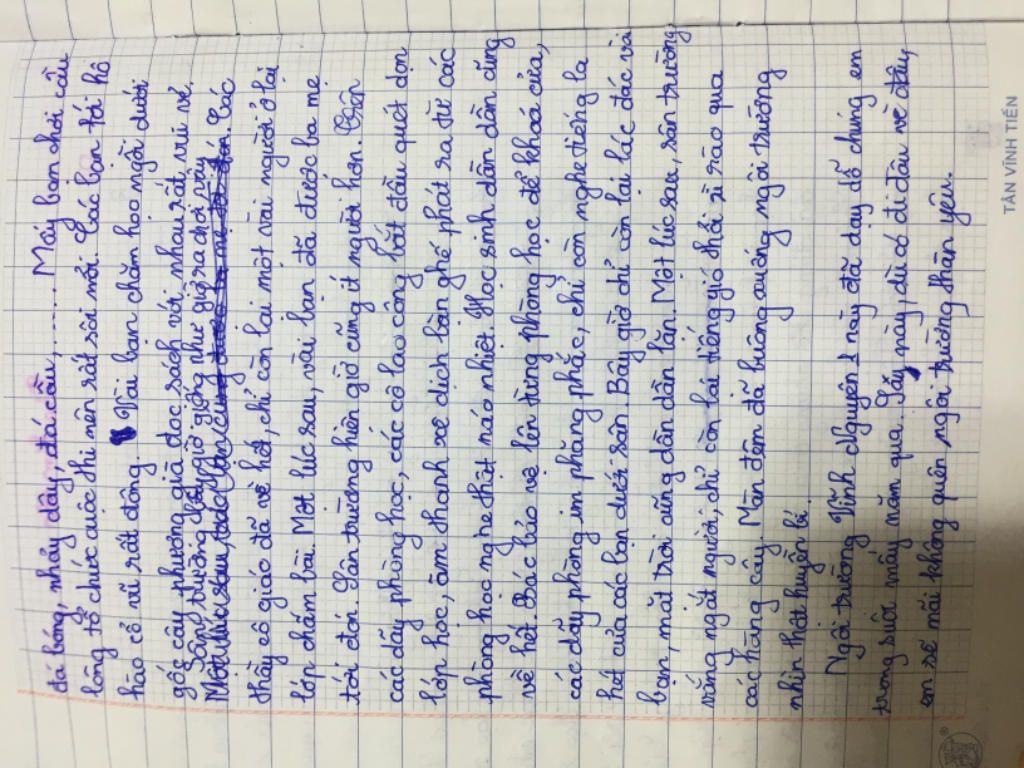 đá bóng, nhảy dây, đá cầu,....... Mấy bạn chơi cầu
lông tổ chức cuộc thi nên rất sôi nổi. Các bạn tới hô
hào cổ vũ rất đông. Vài bạn chăm học ngồi dưới
gốc cây phượng già đọc sách với nhau rất vui vẻ.
Sân trường bây giờ giống như giờ ra chơi vậy. Các
thầy cô giáo đã về hết, chỉ còn lại một vài người ở lại
lớp chấm bài. Một lúc sau, vài bạn đã được ba mẹ
tới đón. Sân trường hiên giờ cũng ít người hơn. Trên
các dãy phòng học, các cô lao công bắt đầu quét dọn
lớp học, âm thanh xê dịch bàn ghế phát ra từ các
phòng học nghe thật náo nhiệt. Học sinh dần dần cũng
về hết. Bác bảo vệ lên từng phòng học để khoá cửa,
các dãy phòng im phăng phắc, chỉ còn nghe tiếng la
hét của các bạn dưới sân. Bây giờ chỉ còn lại lác đác vài
bạn, mặt trời cũng dần dần lặn. Một lúc sau, sân trường
vắng ngắt người, chỉ còn lại tiếng gió thổi rì rào qua
các hàng cây. Màn đêm đã buông xuống ngôi trường
nhìn thật huyền bí.
Ngôi trường Vĩnh Nguyên 1 này đã dạy dỗ chúng em
trong suốt mấy năm qua. Sau này, dù có đi đâu về đâu,
em sẽ mãi không quên ngôi trường thân yêu.
TÂN VĨNH TIẾN